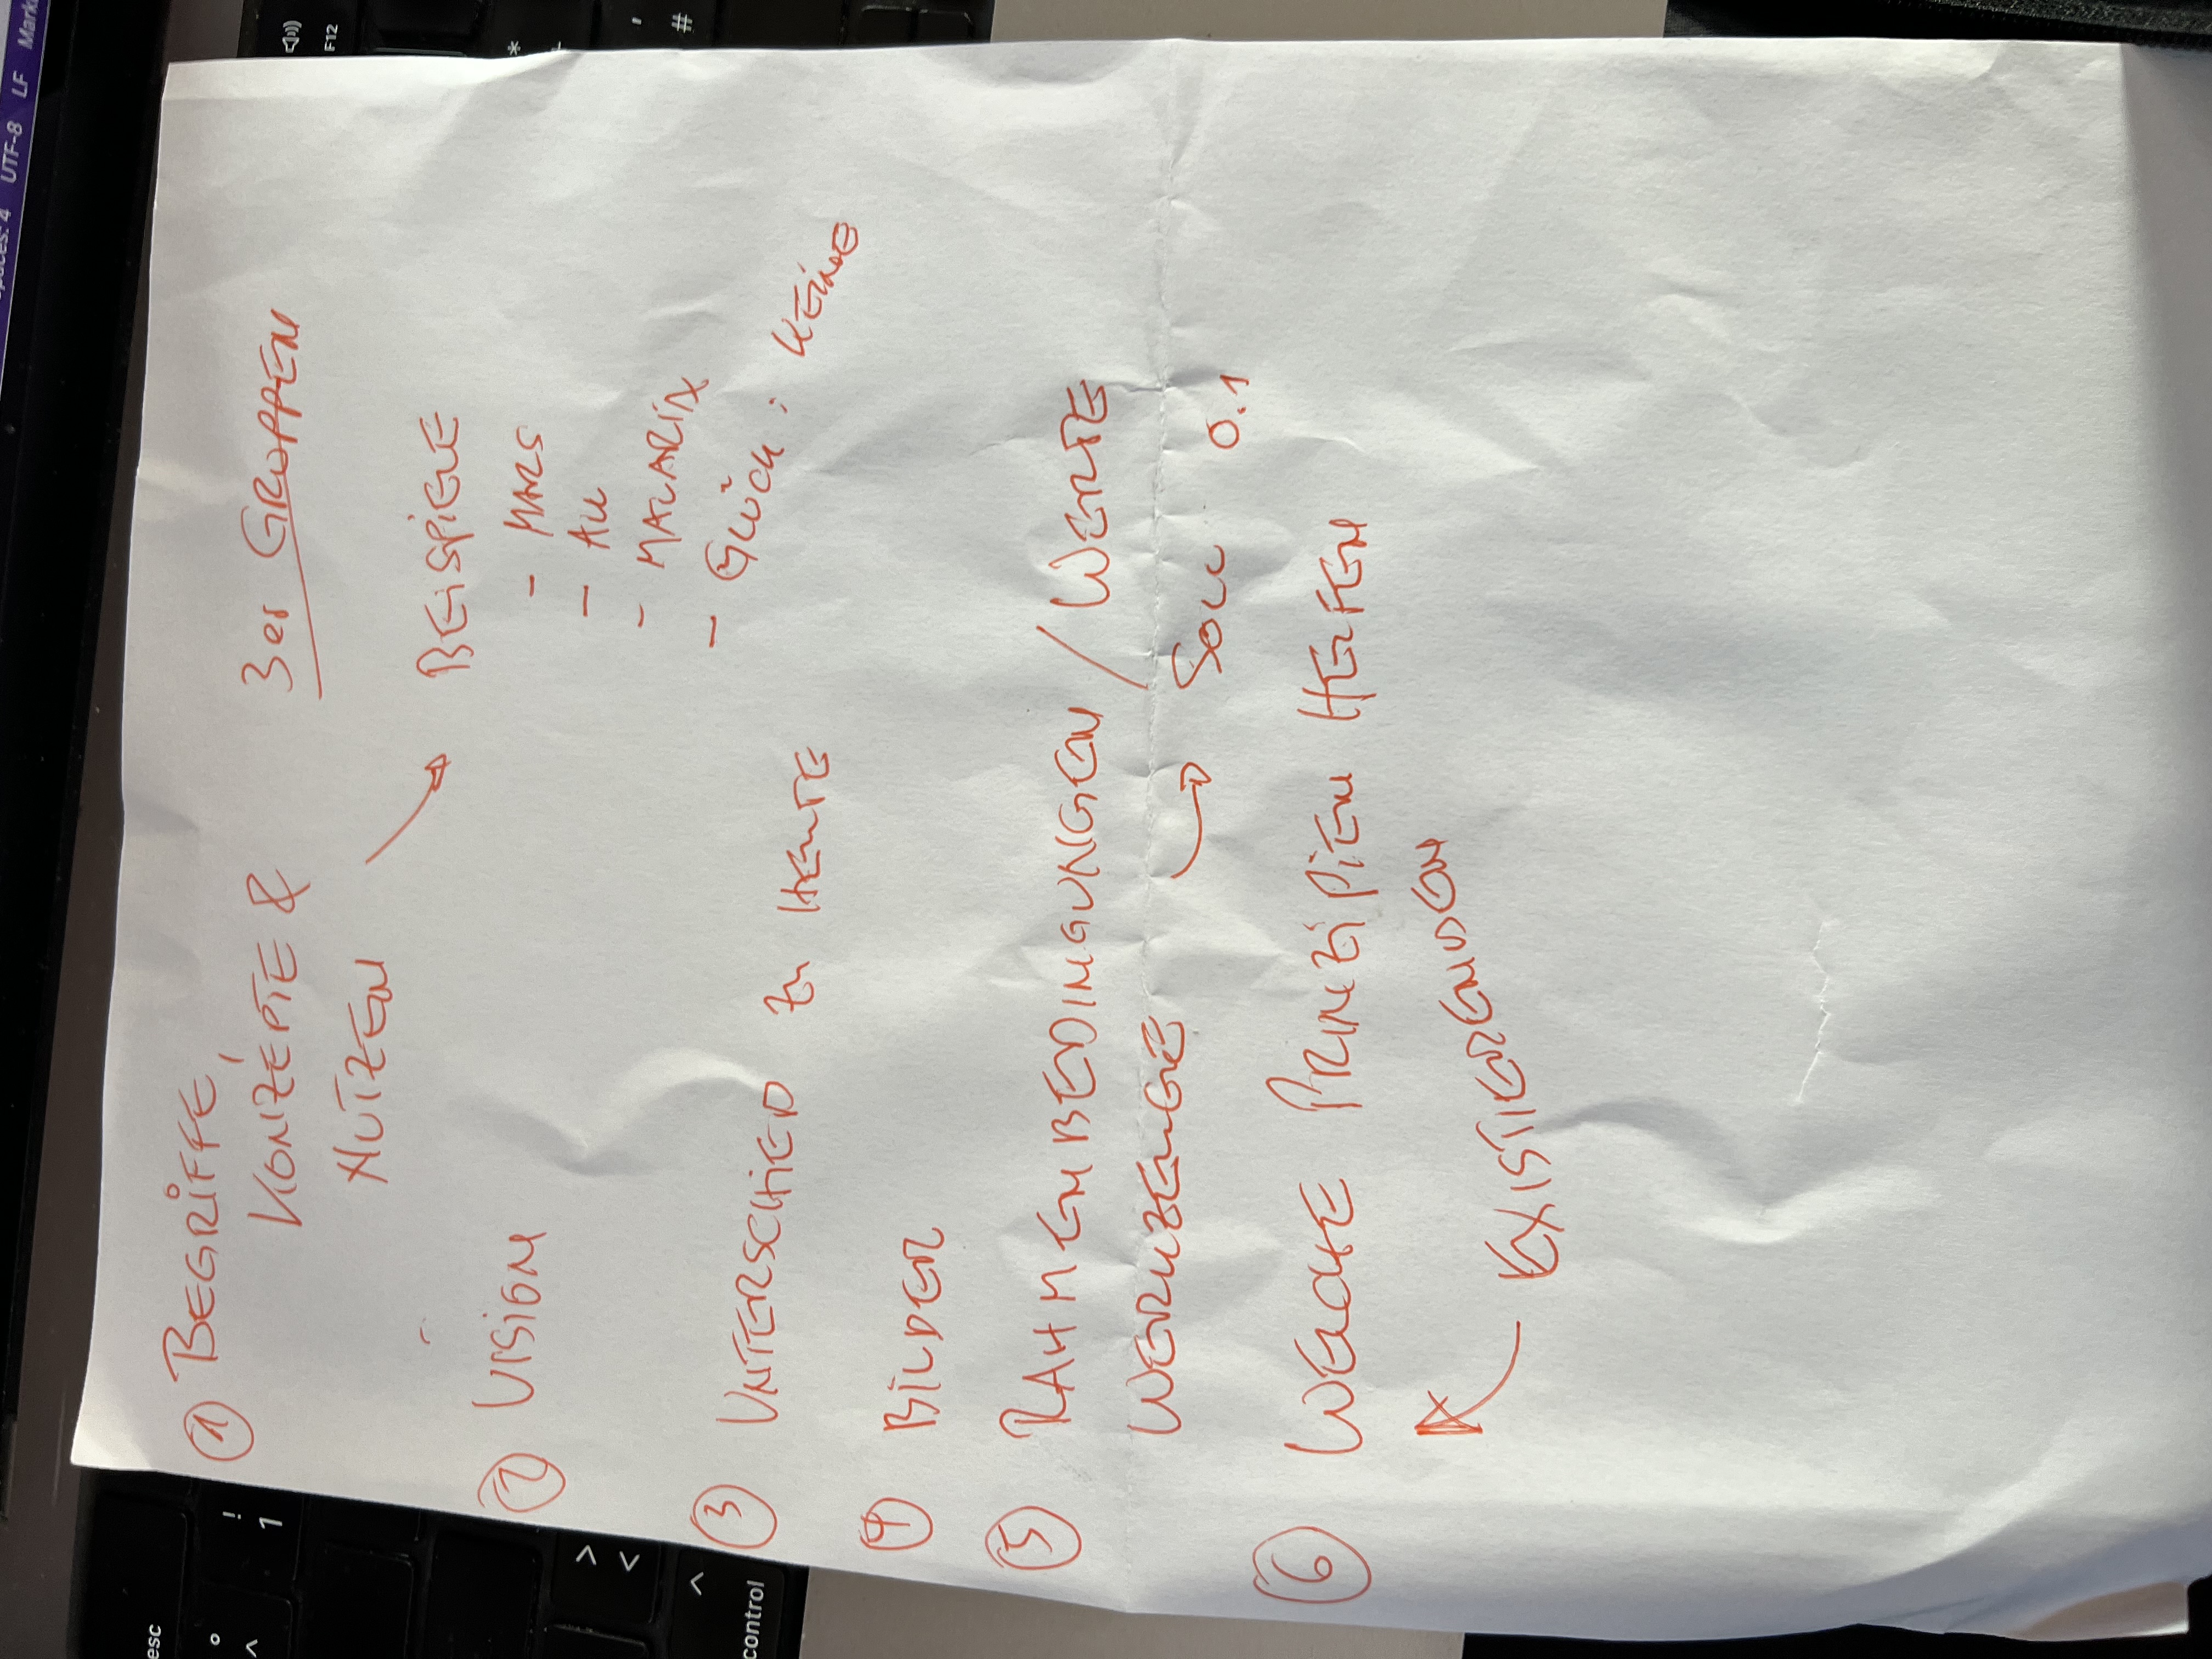 Spaces: 4 UTF-8 LF
esc
°
^
!
1
>
<
^
control
F12
*
+
'
#
① BEGRIFFE,
KONZEPTE &
NUTZEN
3er GRUPPEN
→ BEISPIELE
- MARS
- ALL
- MALARIA
- GLÜCK : KEINE
② VISION
③ UNTERSCHIED ZU HEUTE
④ BILDER
⑤ RAHMENBEDINGUNGEN / WERTE
WERKZEUGE → SOLL 0.1
⑥ WELCHE PRINZIPIEN HELFEN
EXISTIERENDEN